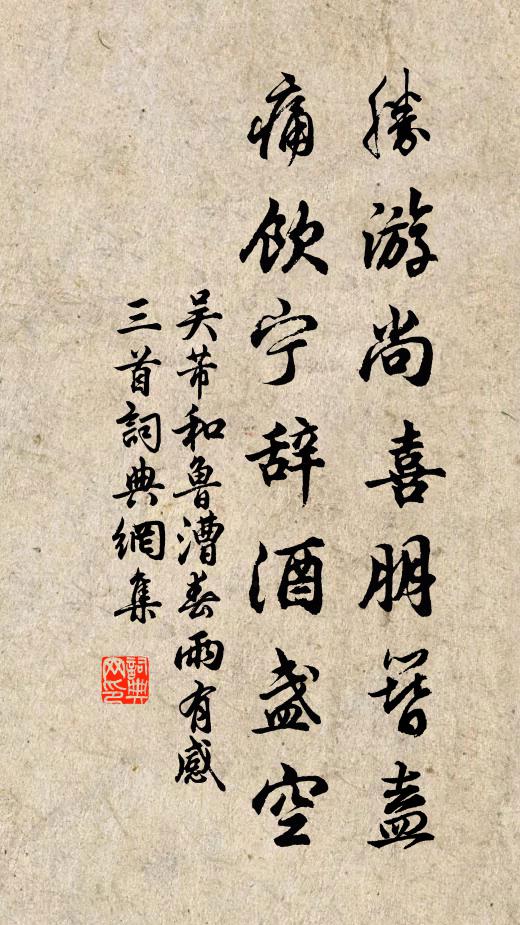 勝游尚喜朋簪盍
痛饮宁辞酒盏空
吴芾和鲁漕春雨有感
三首詞典網集
詞典
网印